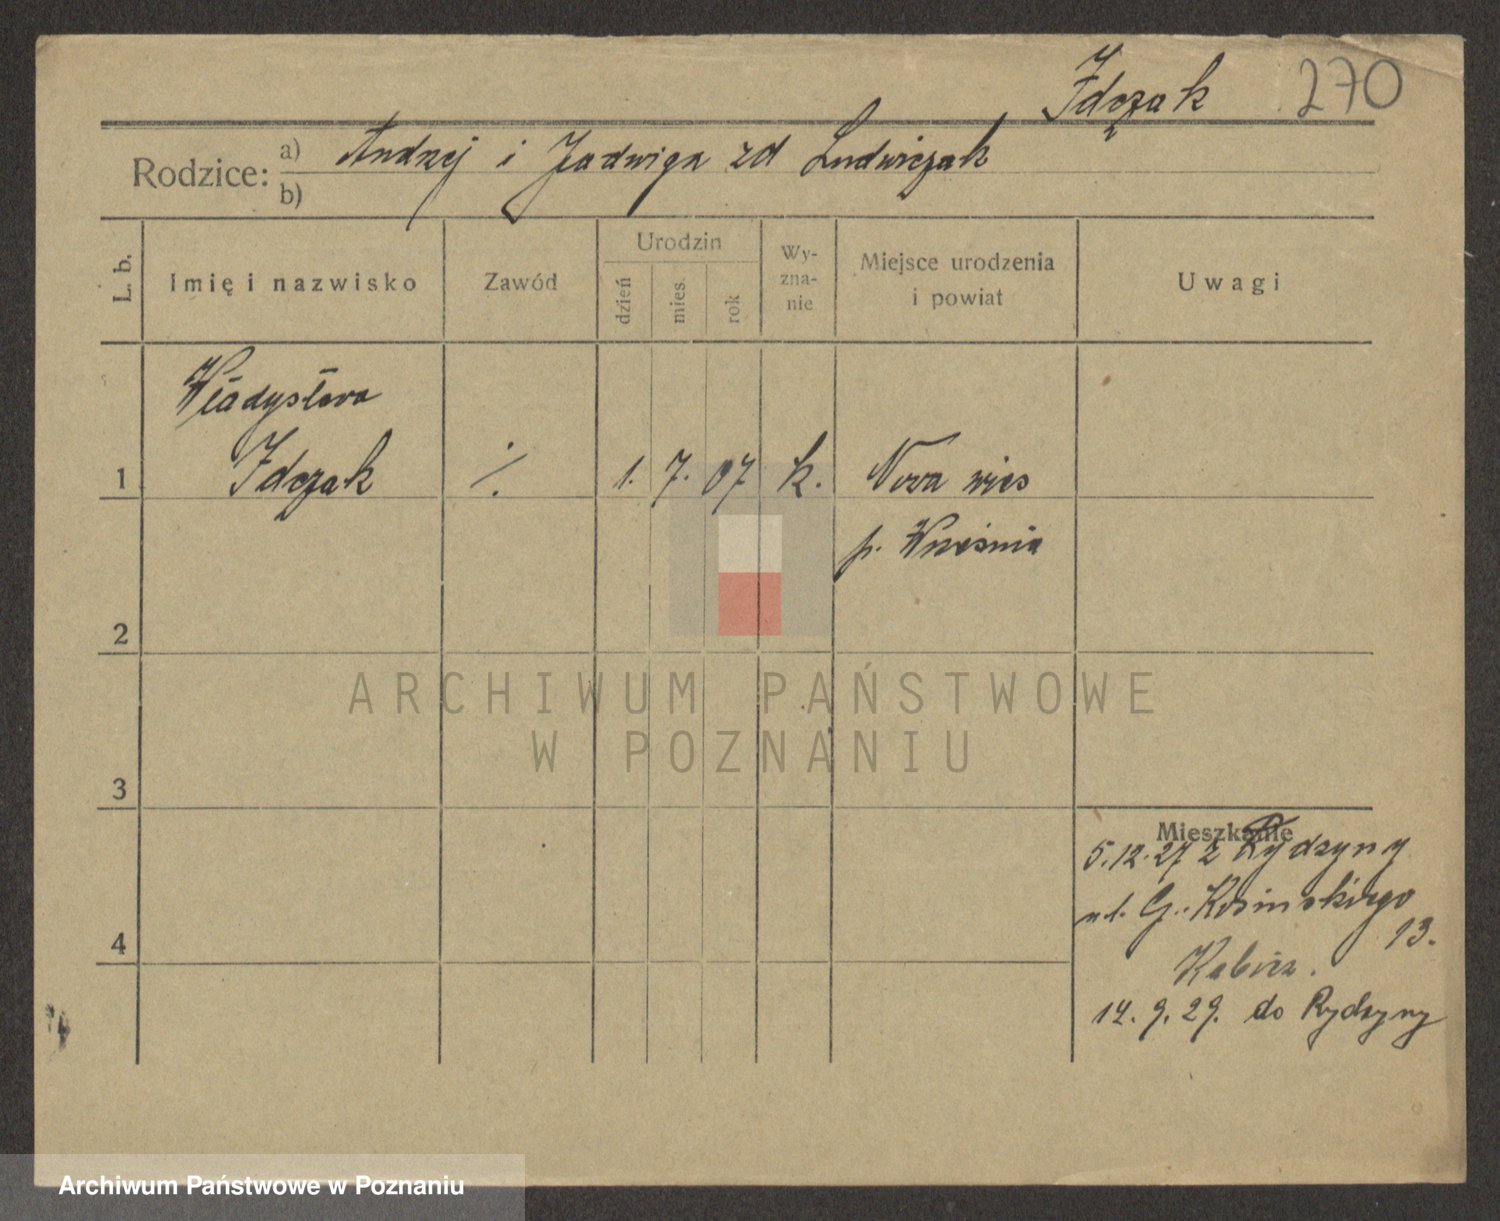 Idczak 270
Rodzice: a) Andrzej i Jadwiga zd Ludwiczak
b)
L. b. Imię i nazwisko Zawód Urodzin dzień mies. rok Wy-zna-nie Miejsce urodzenia i powiat Uwagi
Władysława
1 Idczak ./. 1. 7. 07 k. Nowa wies
p. Września
2
ARCHIWUM PAŃSTWOWE
W POZNANIU
3
Mieszkanie
5.12.27 z Rydzyny
ul. G. Kosinskiego
13.
4
14. 9. 29. do Rydzyny
Archiwum Państwowe w Poznaniu